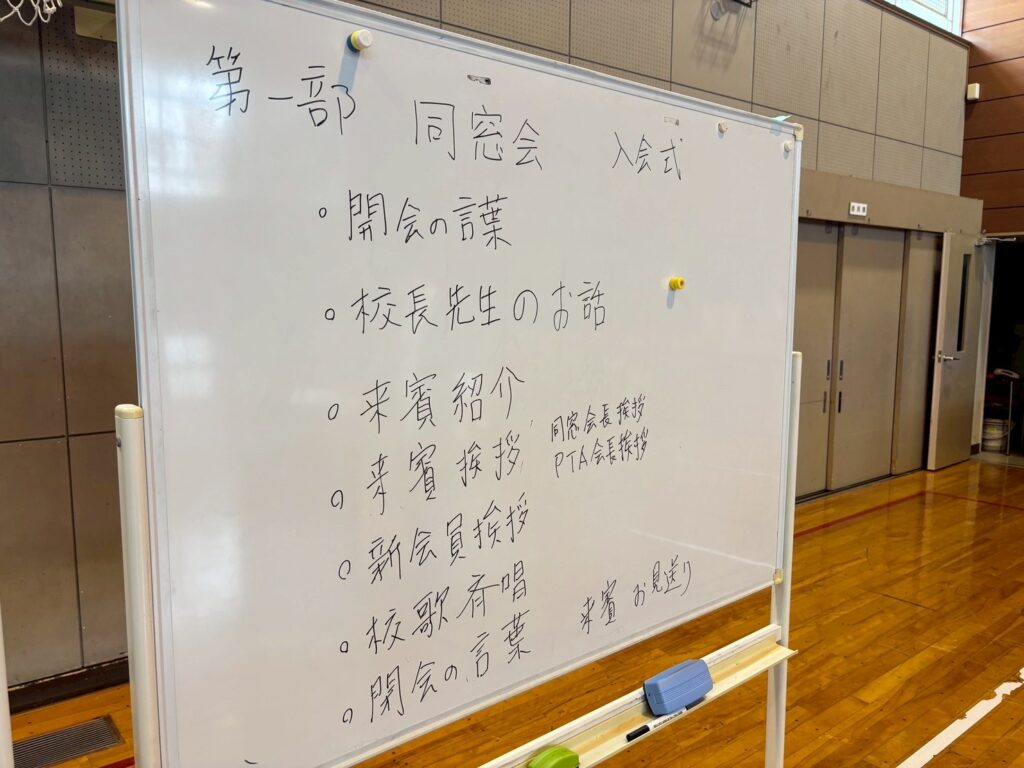 第一部 同窓会 入会式
。開会の言葉
。校長先生のお話
。来賓紹介
。来賓挨拶 同窓会長挨拶
PTA会長挨拶
。新会員挨拶
。校歌斉唱
。閉会の言葉 来賓お見送り